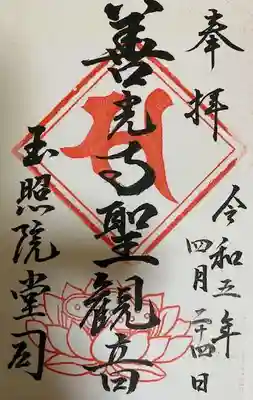 奉拝
令和五年
四月二十四日
善光寺聖観音
玉照院堂司